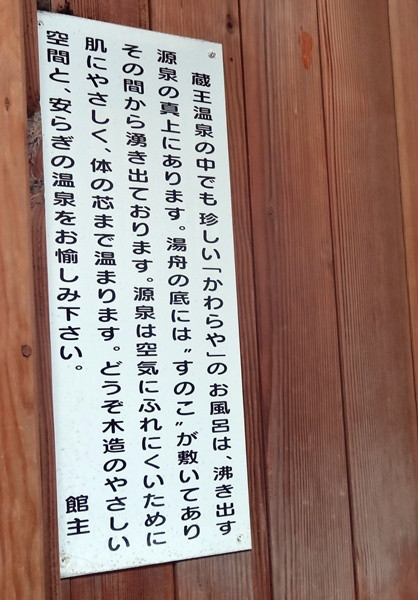 蔵王温泉の中でも珍しい「かわらや」のお風呂は、沸き出す
源泉の真上にあります。湯舟の底には〝すのこ〟が敷いてあり
その間から湧き出ております。源泉は空気にふれにくいために
肌にやさしく、体の芯まで温まります。どうぞ木造のやさしい
空間と、安らぎの温泉をお愉しみ下さい。
館主